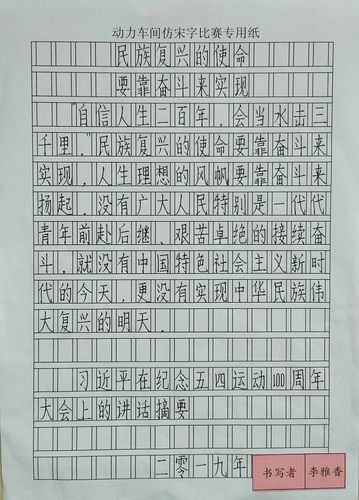 动力车间仿宋字比赛专用纸
民族复兴的使命
要靠奋斗来实现
“自信人生二百年，会当水击三
千里。”民族复兴的使命要靠奋斗来
实现，人生理想的风帆要靠奋斗来
扬起。没有广大人民特别是一代代
青年前赴后继、艰苦卓绝的接续奋
斗，就没有中国特色社会主义新时
代的今天，更没有实现中华民族伟
大复兴的明天。
习近平在纪念五四运动100周年
大会上的讲话摘要
二零一九年
书写者 李雅香